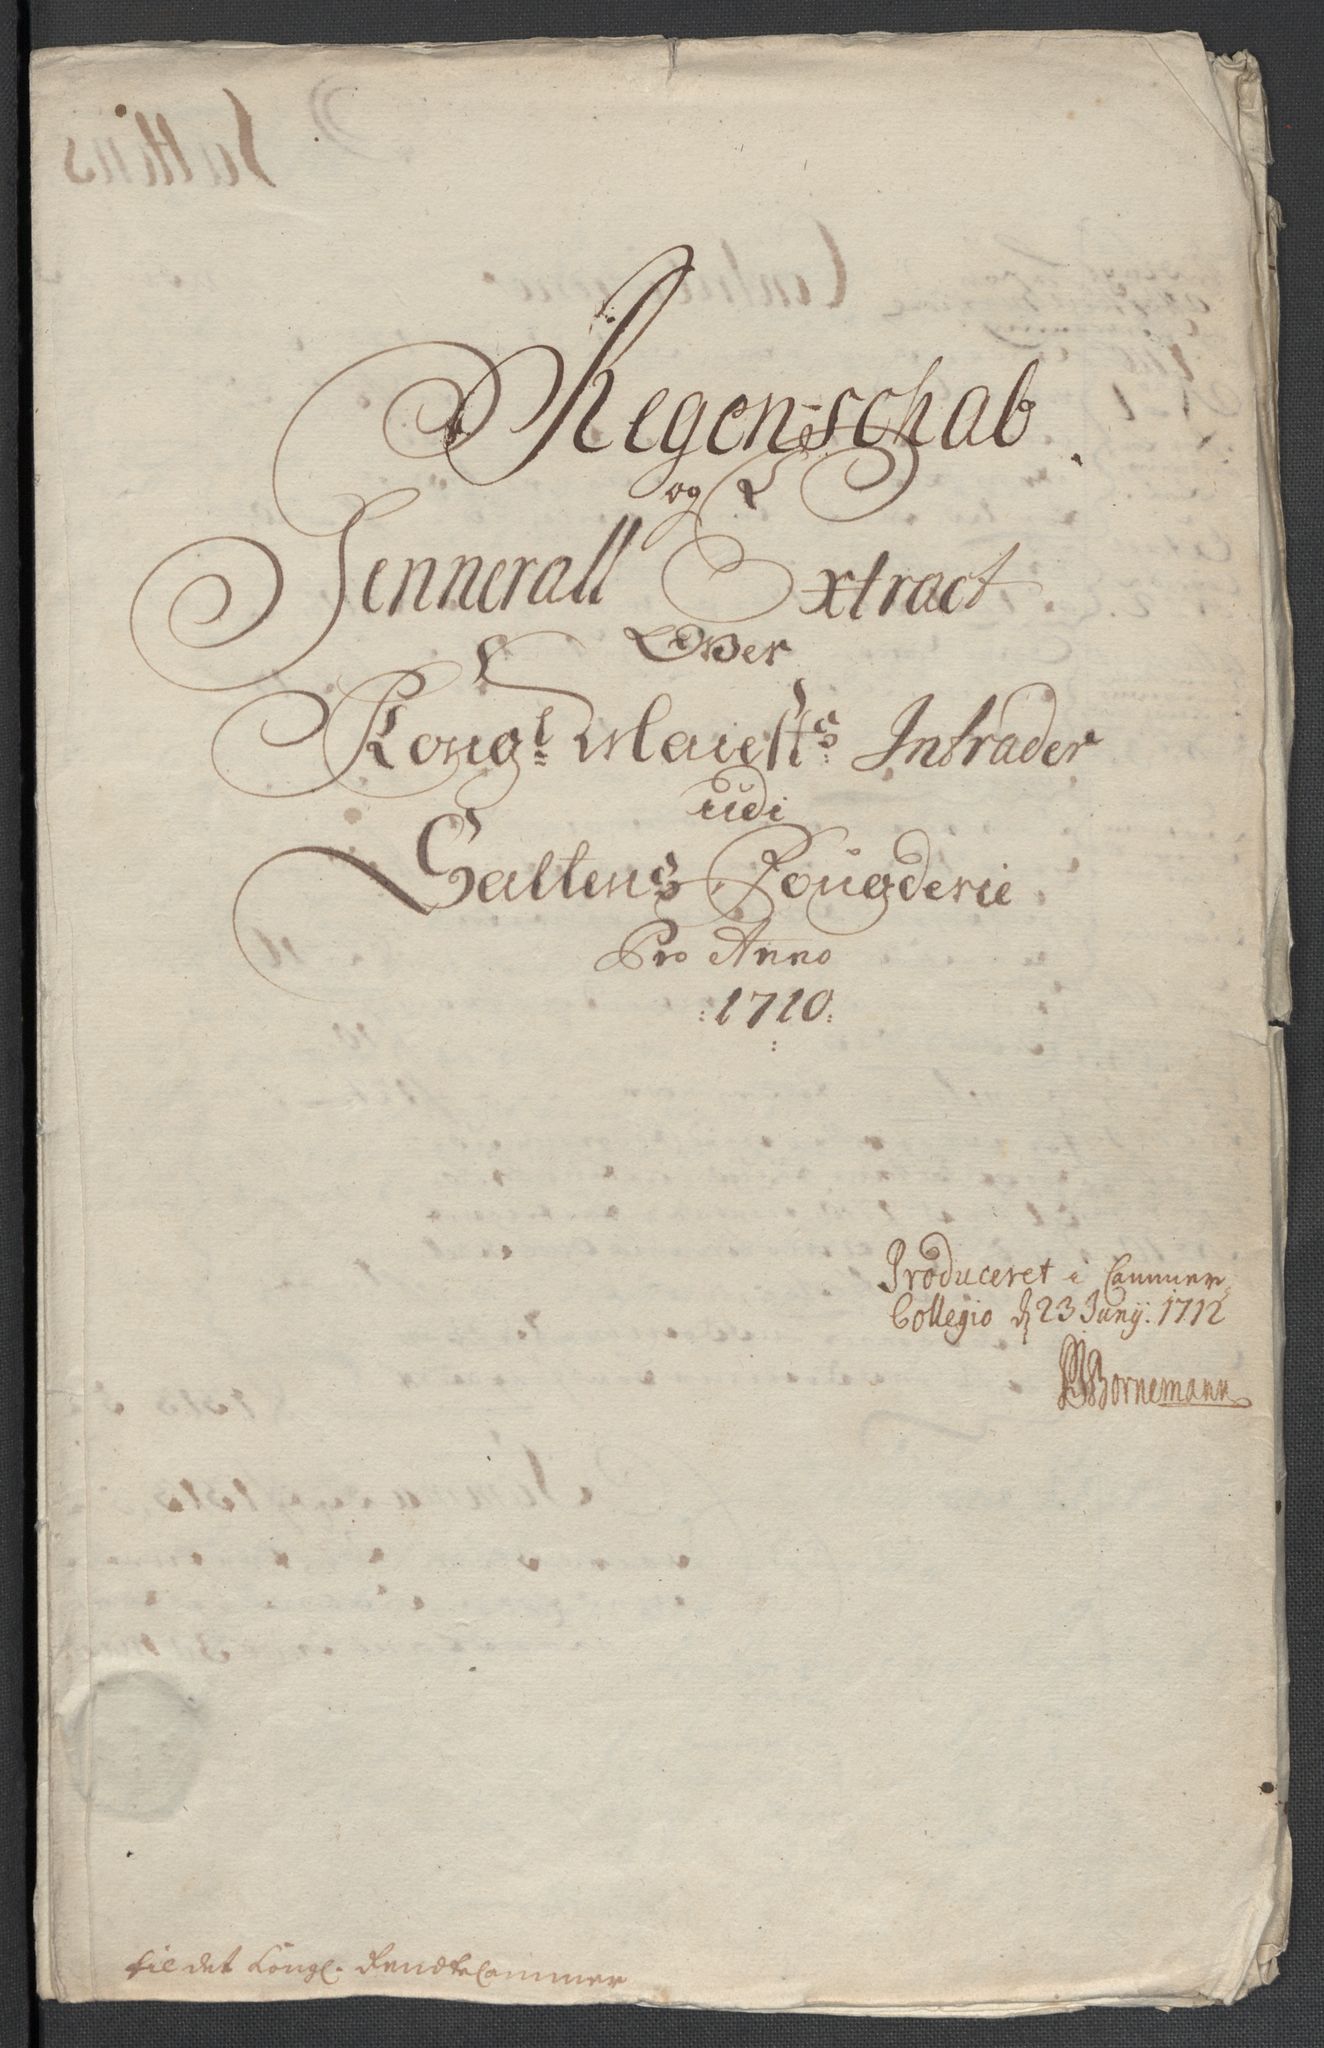 Regenschab
og
Jennerall Extract
Over
Kongl Maiests Intrader
udi
Saltens Fougderie
Pro Anno
:1710:
Produceret i Cammer
Collegio d 23 Junij: 1712
Bornemann
til det Kongl. Rendte Cammer